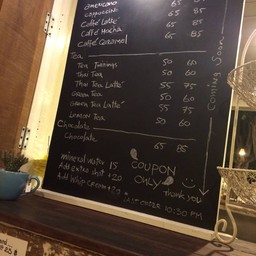 americano 65
cappuccino 65 85
Caffé Latte 65 85
Caffé Mocha 65 85
Caffé Caramel
Tea
Tea Twinings 50 60
Thai Tea 50 60
Thai Tea Latte 55 75
Green Tea 50 60
Green Tea Latte 55 75
Lemon Tea 50 60
Chocolate
Chocolate 65 85
Coming Soon
mineral water 15
Add extra shot +20
Add Whip cream +20
COUPON
ONLY
Thank you
LAST ORDER 10:30 PM